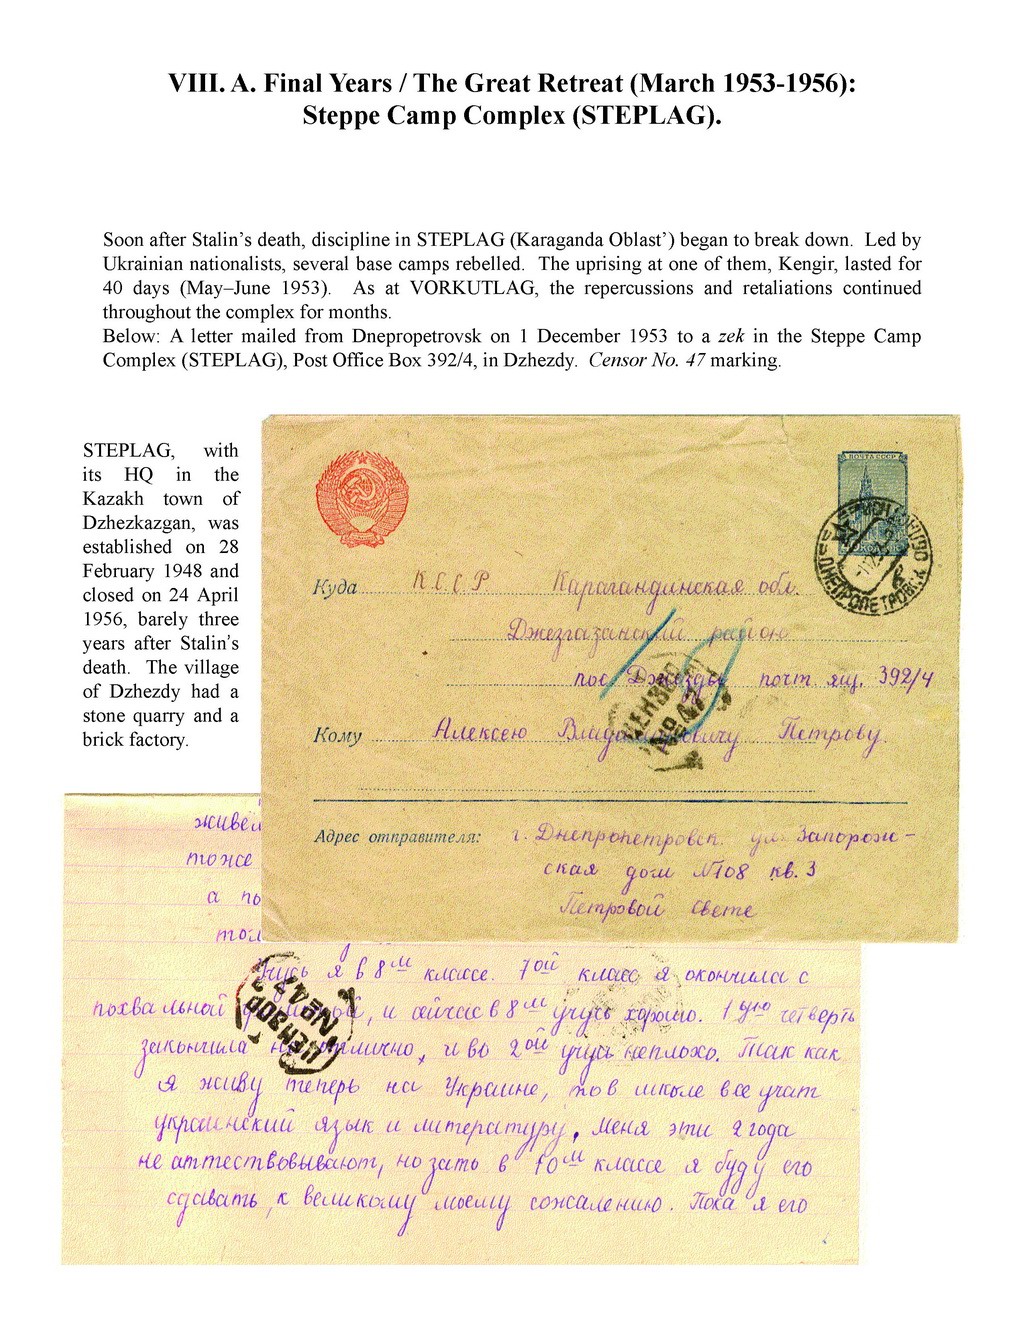 VIII. A. Final Years / The Great Retreat (March 1953-1956):
Steppe Camp Complex (STEPLAG).
Soon after Stalin’s death, discipline in STEPLAG (Karaganda Oblast’) began to break down. Led by
Ukrainian nationalists, several base camps rebelled. The uprising at one of them, Kengir, lasted for
40 days (May–June 1953). As at VORKUTLAG, the repercussions and retaliations continued
throughout the complex for months.
Below: A letter mailed from Dnepropetrovsk on 1 December 1953 to a zek in the Steppe Camp
Complex (STEPLAG), Post Office Box 392/4, in Dzhezdy. Censor No. 47 marking.
STEPLAG, with
its HQ in the
Kazakh town of
Dzhezkazgan, was
established on 28
February 1948 and
closed on 24 April
1956, barely three
years after Stalin’s
death. The village
of Dzhezdy had a
stone quarry and a
brick factory.
ПОЧТА СССР
ДНЕПРОПЕТРОВСК
Куда К.С.С.Р. Карагандинская обл.
Джезгазганский районо
пос. Джезды почт. ящ. 392/4
ЦЕНЗОР
№ 47
Кому Алексею Владимировичу Петрову.
Адрес отправителя: г. Днепропетровск. ул. Запорож-
ская дом №108 кв. 3
Петровой Свете
живём
тоже
а по
толь
Учусь я в 8м классе. 7ой класс я окончила с
похвальной грамотой, и сейчас в 8м учусь хорошо. 1ую четверть
ЦЕНЗОР
№ 47
закончила на отлично, и во 2ой учусь неплохо. Так как
я живу теперь на Украине, то в школе все учат
украинский язык и литературу, меня эти 2 года
не аттествовывают, но зато в 10м классе я буду его
сдавать, к великому моему сожалению. Пока я его